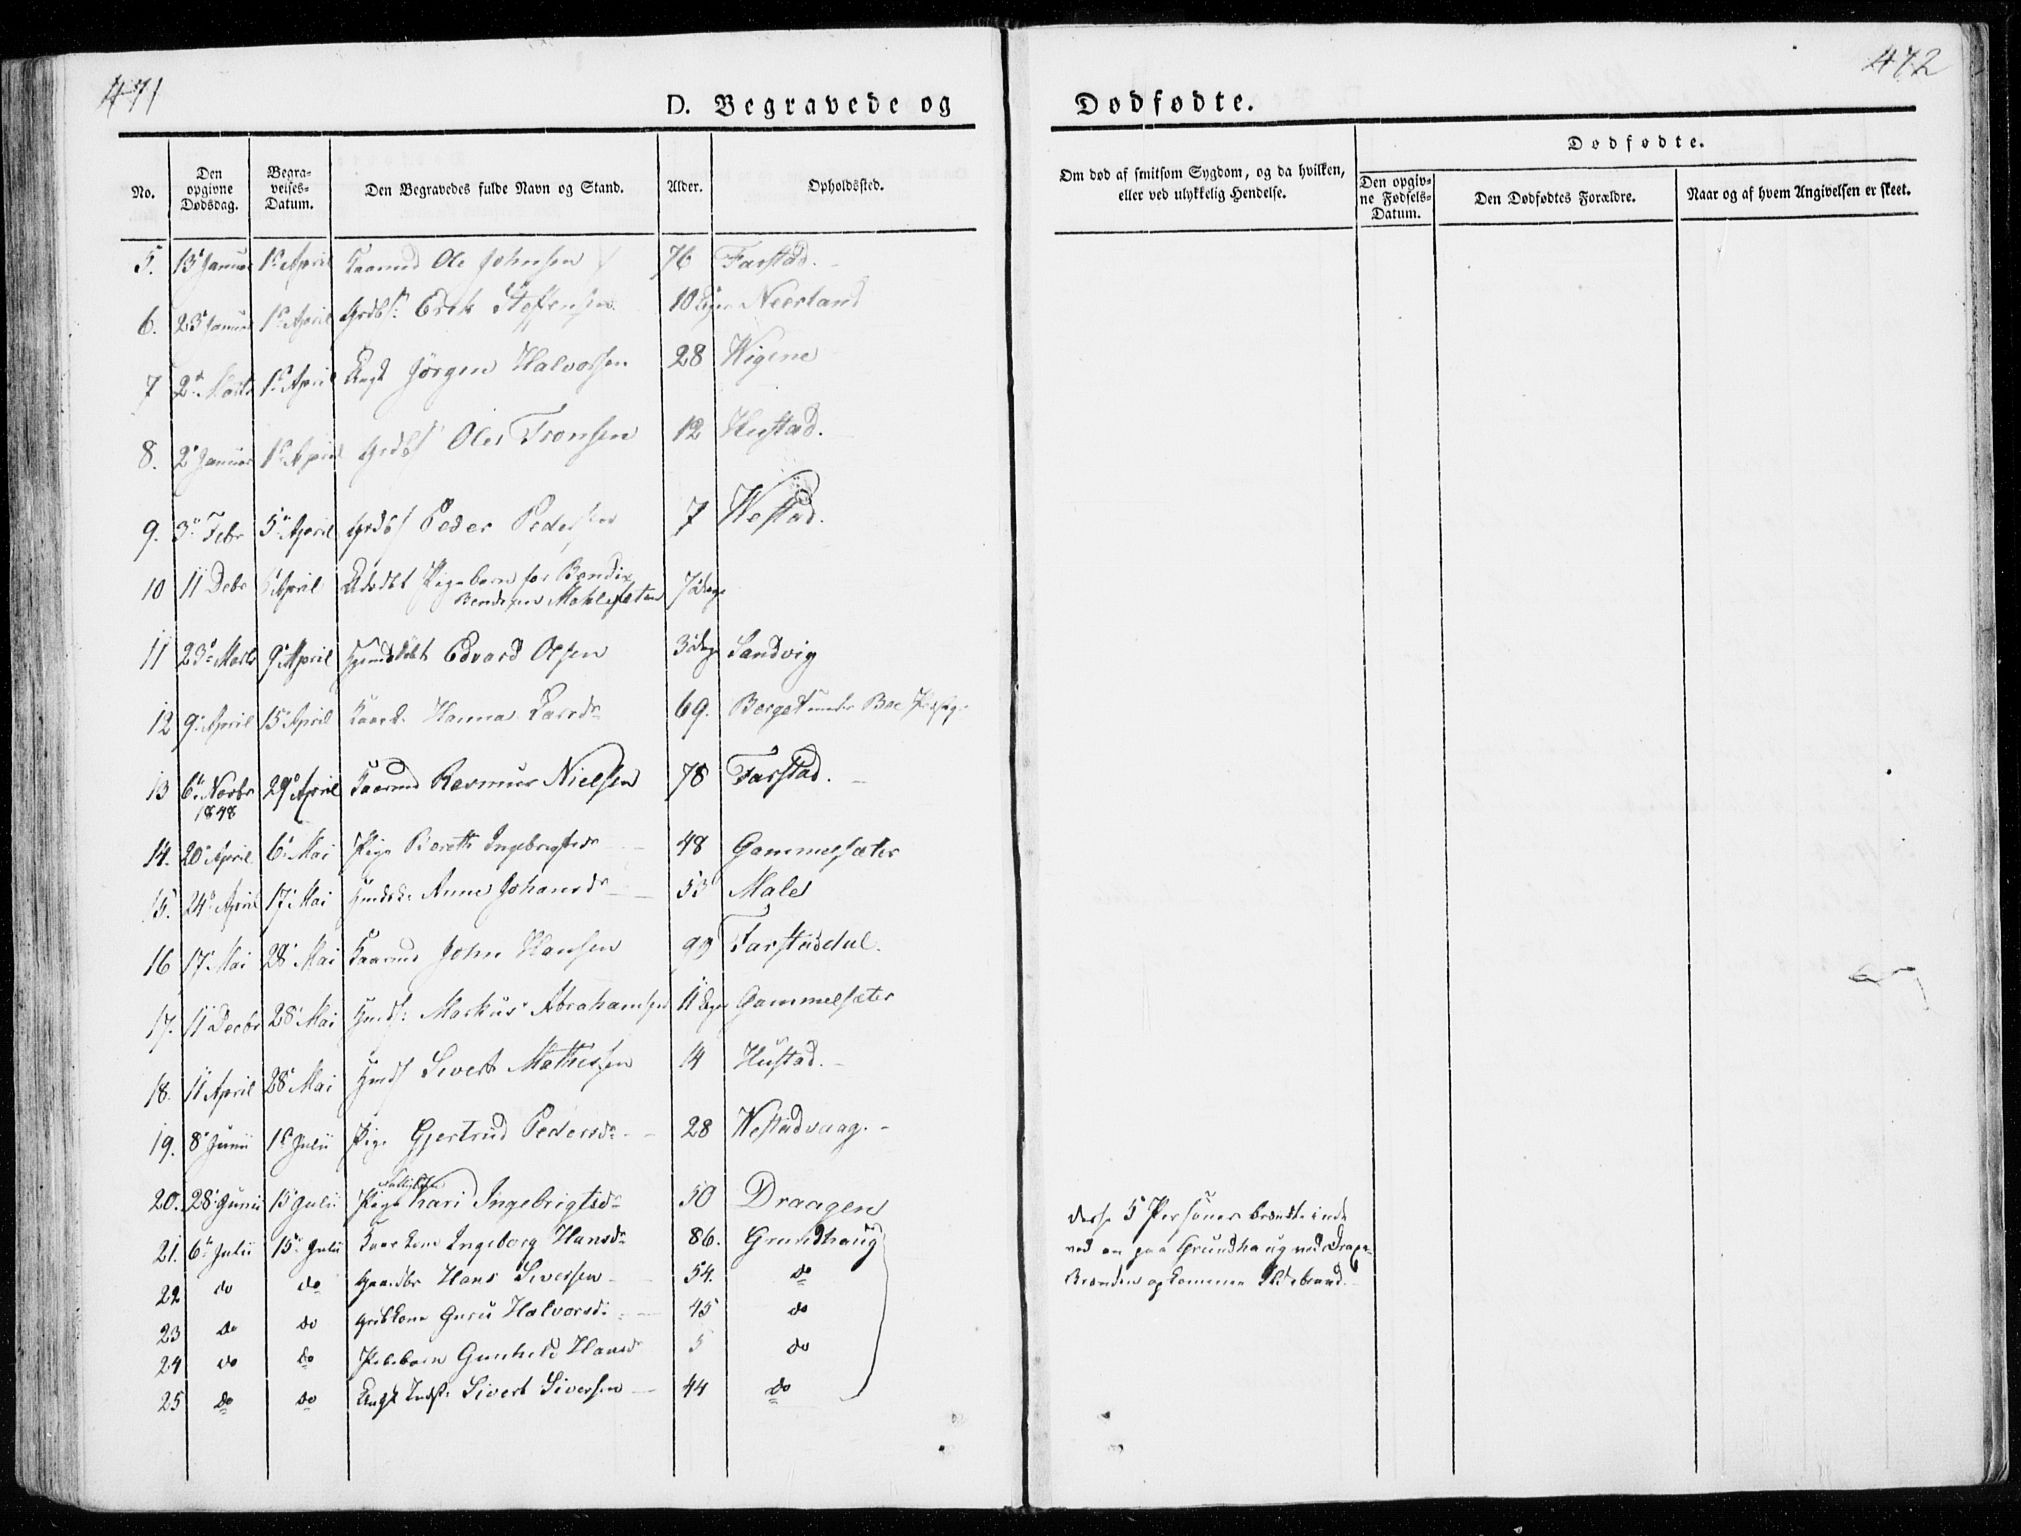 471
472
D. Begravede og
Dødfødte.
No.
Den opgivne Dødsdag.
Begravelses-Datum.
Den Begravedes fulde Navn og Stand.
Alder.
Opholdssted.
Om død af smitsom Sygdom, og da hvilken, eller ved ulykkelig Hendelse.
Dødfødte.
Den opgivne Fødsels-Datum.
Den Dødfødtes Forældre.
Naar og af hvem Angivelsen er skeet.
5. 13 Januar 1 April Kaarmd Ole Johnsen 76 Farstad.
6. 23 Januar 1 April Grdbs: Erik Steffensen 10 Neerland
7 2 Marts 1 April Ungk Jörgen Halvorsen 28 Wigene
8. 2 Januar 1 April Grdbs Oles Tronsen 12 Hustad.
9. 3 Febr 5 April Grdbs Peder Pedersen 7 Westad.
10 11 Debr April Udøbt Pigebarn for Bendix Bendixen Mahlesæter 7 dage
11 23 Marts 9 April Edvard Olsen 3 dage Sandvig
12 9 April 15 April Hanna Larsdr 69. Berget under Boe
13 6 Novbr 1848 29 April Kaarmd Rasmus Nielsen 78 Farstad.
14. 20 April 6 Mai Pige Bereth Ingebrigtsdr 48 Gammelsæter
15. 24 April 17 Mai Anne Johansdr 53 Male
16 17 Mai 28 Mai Kaarmd John Hansen 99 Farstaddal.
17. 11 Decbr 28 Mai Markus Abrahamsen 11 Gammelsæter
18. 11 April 28 Mai Sivert Mathesen 14 Hustad.
19. 8 Junii 1 Julii Pige Gjertrud Pedersdr 28 Westadvaag.
20. 28 Junii 15 Julii Pige Kari Ingebrigtsdr 50 Draagen
21. 6 Julii 15 Julii Kaarkone Ingeborg Hansdr 86. Grundhaug
22 do do Gaardbr Hans Siversen 54. do
23 do do Grdkone Guru Halvorsdr 45 do
24 do do Pigebarn Gunhild Hansdr 5 do
25 do do Ungk Indst: Sivert Siversen 44 do
disse 5 Personer brændte inde
ved en paa Grundhaug ved
Brænden opkommen Ildebrand.